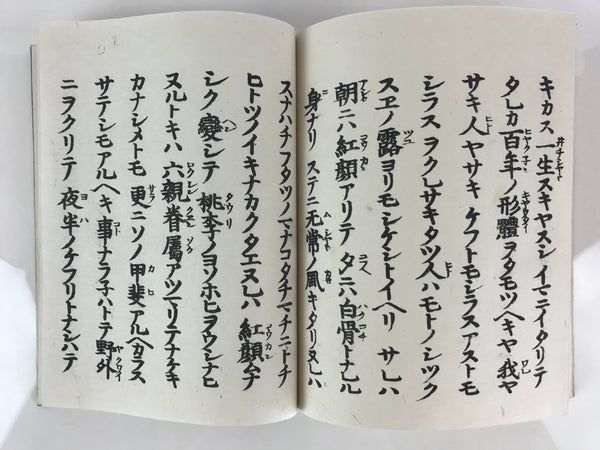 キカス一生スキヤスシイマニイタリテ
タレカ百年ノ形體ヲタモツヘキヤ我ヤ
サキ人ヤサキケフトモシラスアストモ
シラスヲクレサキタツ人ハモトノシツク
スヱノ露ヨリモシケシトイヘリサレハ
朝ニハ紅顔アリテ夕ニハ白骨トナレル
身ナリステニ无常ノ風キタリヌレハ
スナハチフタツノマナコタチマチニトチ
ヒトツノイキナカクタエヌレハ紅顔ムナ
シク變シテ桃李ノヨソホヒヲウシナヒ
ヌルトキハ六親眷屬アツマリテナケキ
カナシメトモ更ニソノ甲斐アルヘカラス
サテシモアルヘキ事ナラ子ハトテ野外
ニヲクリテ夜半ノケフリトナシハテ